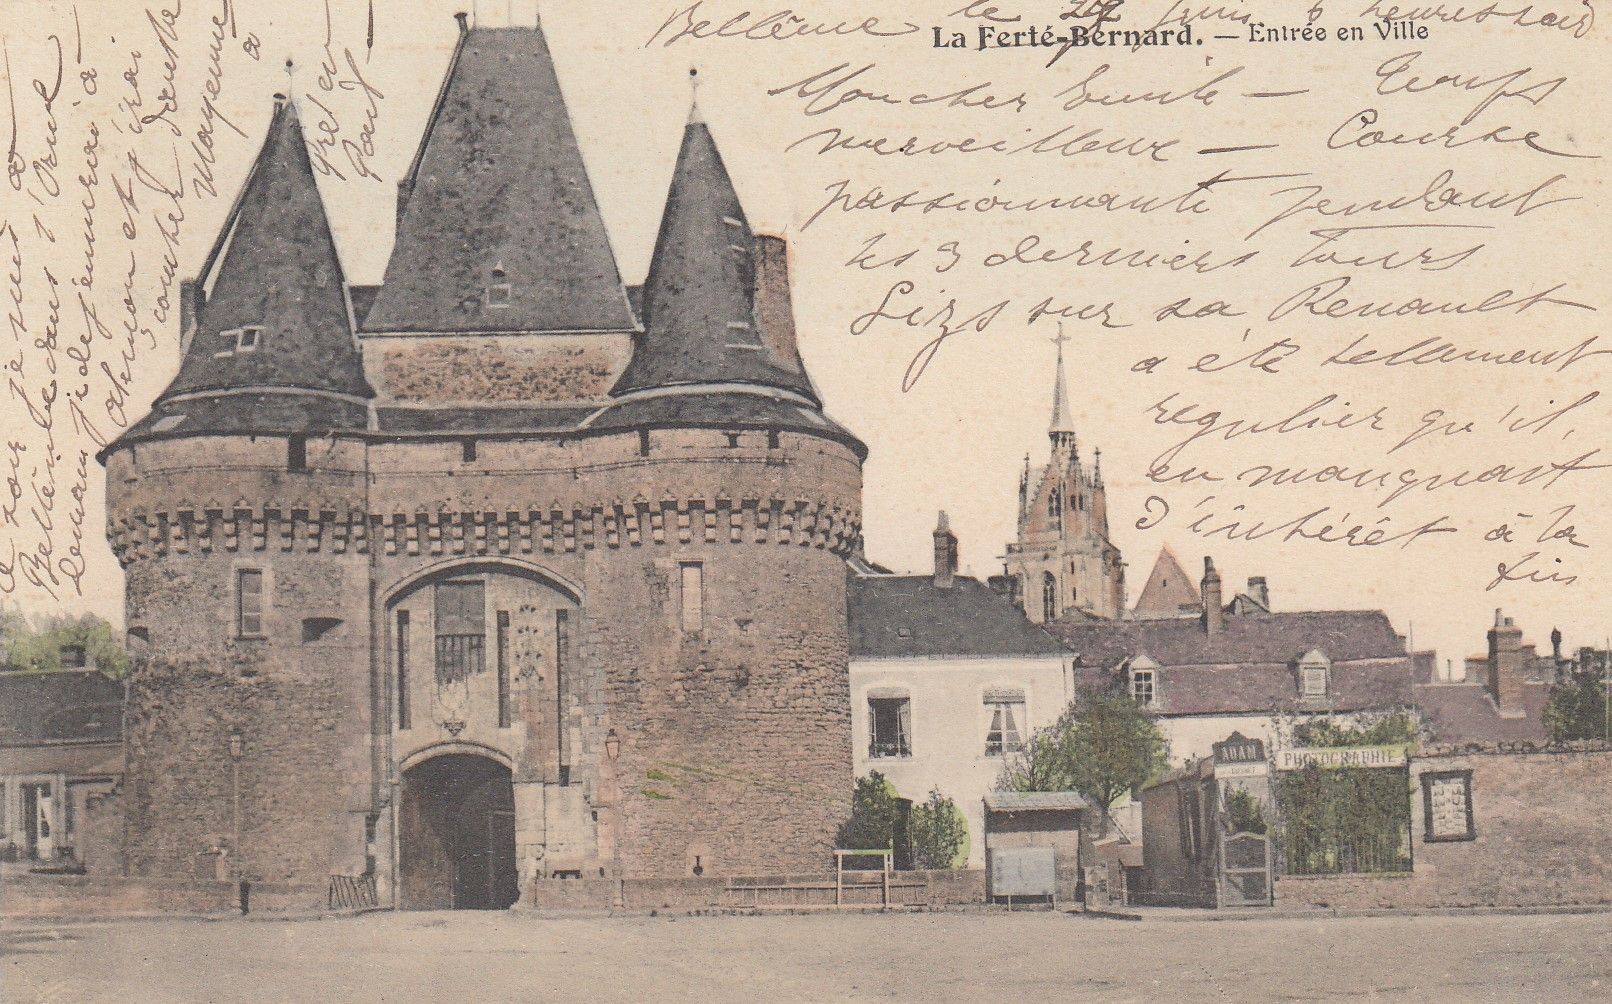 La Ferté-Bernard. — Entrée en Ville
Bellême le 27 juin 6 heures soir
Mon cher Emile — Temps
merveilleux — Course
passionnante pendant
les 3 derniers tours
Sizs sur sa Renault
a été tellement
regulier qu'il,
en manquait
d'intérêt à la
fin
ce soir je suis à
Bellême dans l'Orne
demain je déjeunerai à
Alençon et j'irai
coucher ensuite
à Mayenne
Paul
ADAM
PHOTOGRAPHIE